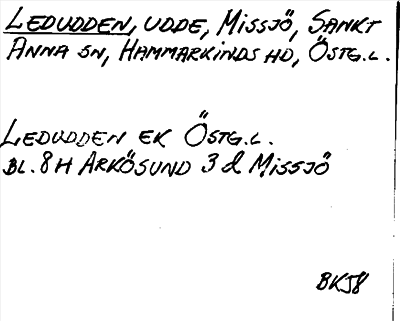 LEDUDDEN, UDDE, MISSJÖ, SANKT
ANNA SN, HAMMARKINDS HD, ÖSTG.L.
LEDUDDEN EK ÖSTG.L.
BL. 8H ARKÖSUND 3d MISSJÖ
BKJ8